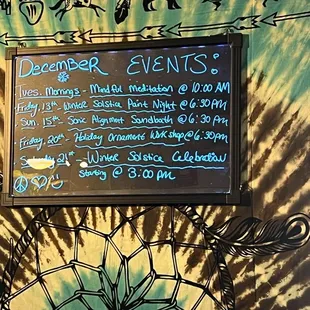 December Events:
Tues. Mornings - Mindful Meditation @ 10:00 AM
Friday, 13th - Winter Solstice Paint Night @ 6:30 PM
Sun. 15th - Sonic Alignment Soundbath @ 6:30 PM
Friday, 20th - Holiday Ornament Wkshop @ 6:30 PM
21st - Winter Solstice Celebration
Starting @ 3:00 PM